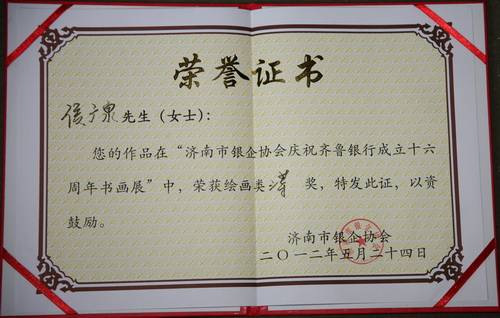 荣誉证书
侯广泉先生（女士）：
您的作品在“济南市银企协会庆祝齐鲁银行成立十六
周年书画展”中，荣获绘画类 奖，特发此证，以资
鼓励。
济南市银企协会
二〇一二年五月二十四日